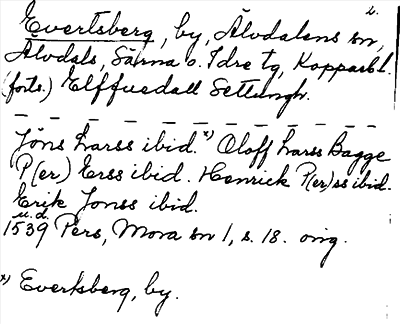 2.
Evertsberg, by, Älvdalens sn,
Älvdals, Särna o. Idre tg, Kopparb. l.
(forts.) Elffuedall Settungh.
Jöns Larss ibid. x) Oloff Larss Bagge
P(er) Erss ibid. Henrick P(er)ss ibid.
Erik Jonss ibid.
u.d.
1539 Pers, Mora sn 1, s. 18. orig.
x) Evertsberg, by.